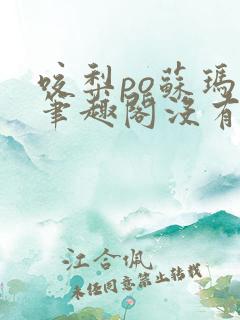 咬梨po蘇瑪
筆趣閣沒有
江合佩
未经同意禁止转载